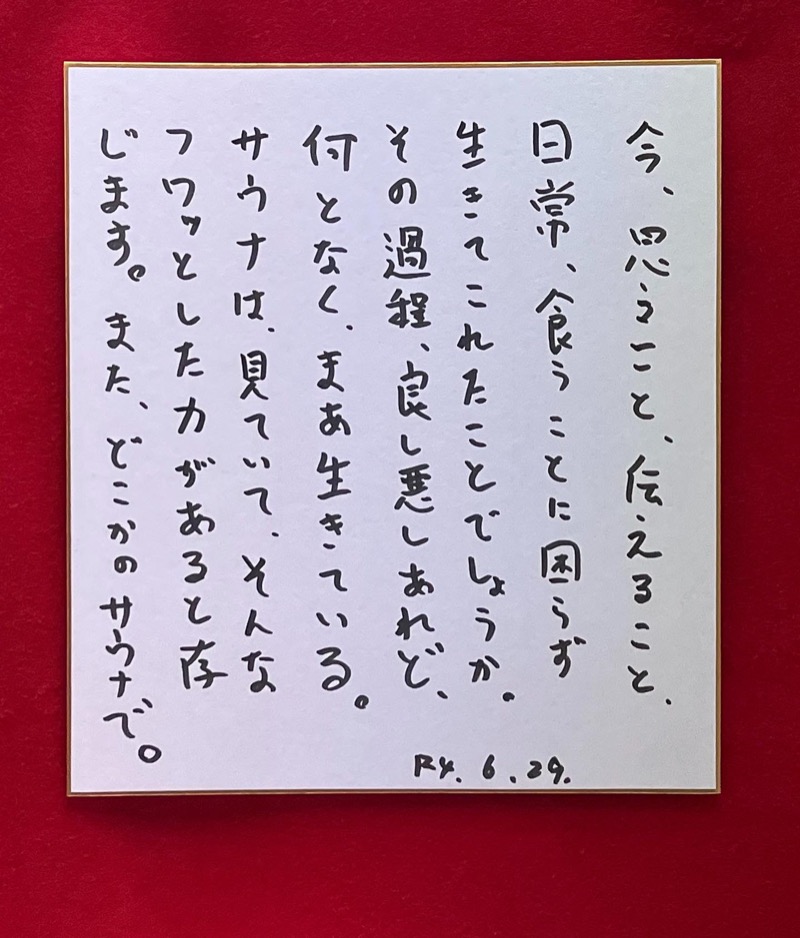 今、思うこと、伝えること、
日常、食うことに困らず
生きてこれたことでしょうか。
その過程、良し悪しあれど、
何となく、まあ生きている。
サウナは、見ていて、そんな
フワッとした力があると存
じます。また、どこかのサウナで。
R4.6.29.